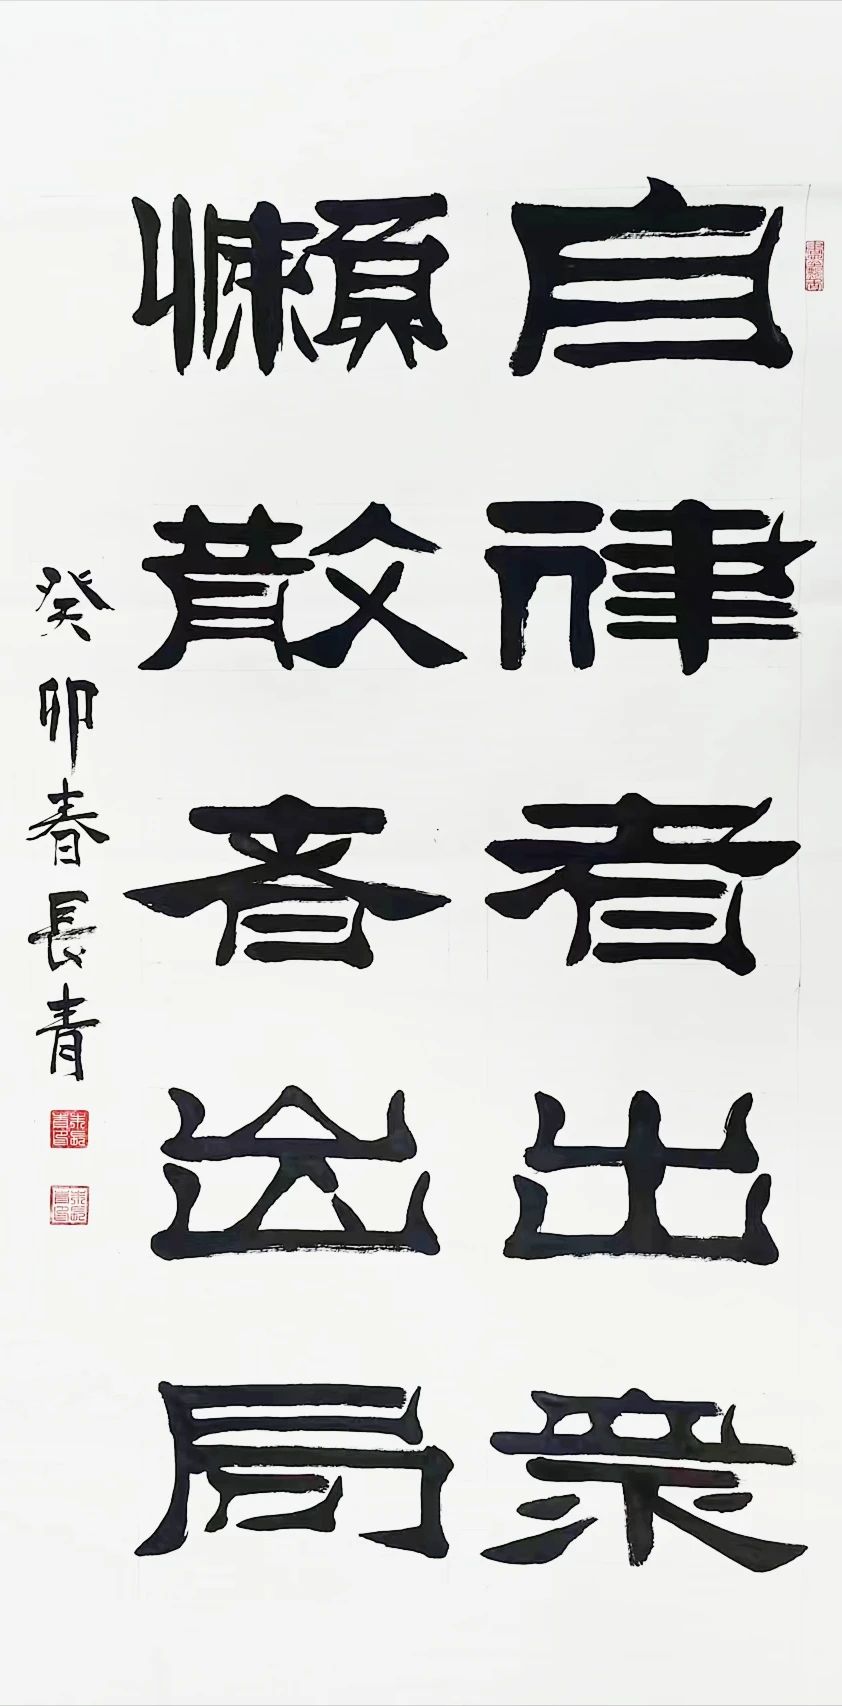 自律者出衆
懶散者出局
癸卯春長青